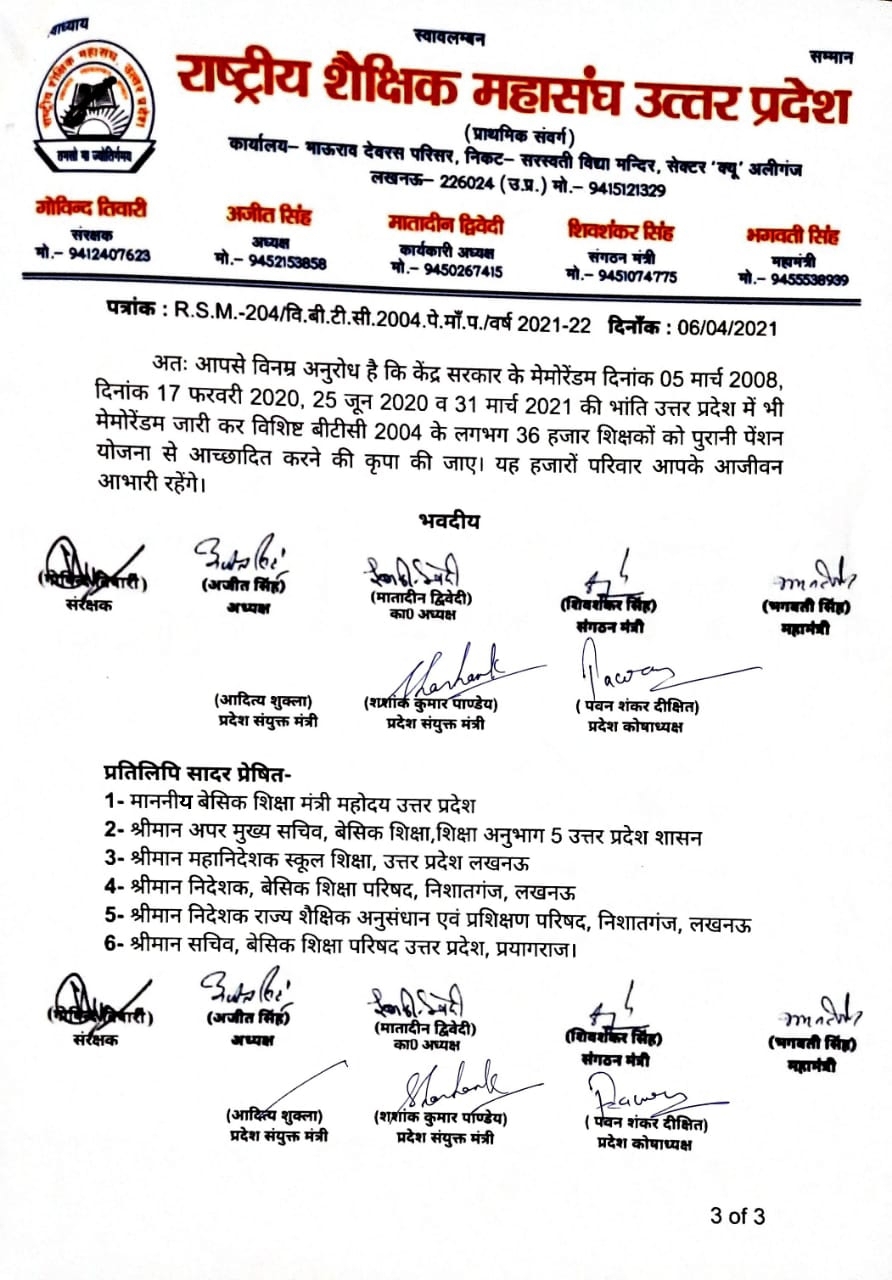 स्वावलम्बन
सम्मान
राष्ट्रीय शैक्षिक महासंघ, उत्तर प्रदेश
तमसो मा ज्योतिर्गमय
राष्ट्रीय शैक्षिक महासंघ उत्तर प्रदेश
(प्राथमिक संवर्ग)
कार्यालय– भाऊराव देवरस परिसर, निकट– सरस्वती विद्या मन्दिर, सेक्टर ‘क्यू’ अलीगंज
लखनऊ– 226024 (उ.प्र.) मो.– 9415121329
गोविन्द तिवारी अजीत सिंह मातादीन द्विवेदी शिवशंकर सिंह भगवती सिंह
संरक्षक अध्यक्ष कार्यकारी अध्यक्ष संगठन मंत्री महामंत्री
मो.– 9412407623 मो.– 9452153858 मो.– 9450267415 मो.– 9451074775 मो.– 9455538939
पत्रांक : R.S.M.-204/वि.बी.टी.सी.2004.पे.माँ.प./वर्ष 2021-22 दिनाँक : 06/04/2021
अतः आपसे विनम्र अनुरोध है कि केंद्र सरकार के मेमोरेंडम दिनांक 05 मार्च 2008,
दिनांक 17 फरवरी 2020, 25 जून 2020 व 31 मार्च 2021 की भांति उत्तर प्रदेश में भी
मेमोरेंडम जारी कर विशिष्ट बीटीसी 2004 के लगभग 36 हजार शिक्षकों को पुरानी पेंशन
योजना से आच्छादित करने की कृपा की जाए। यह हजारों परिवार आपके आजीवन
आभारी रहेंगे।
भवदीय
(गोविन्द तिवारी) (अजीत सिंह) (मातादीन द्विवेदी) (शिवशंकर सिंह) (भगवती सिंह)
संरक्षक अध्यक्ष का0 अध्यक्ष संगठन मंत्री महामंत्री
Shashank Pawan
(आदित्य शुक्ला) (शशांक कुमार पाण्डेय) ( पवन शंकर दीक्षित)
प्रदेश संयुक्त मंत्री प्रदेश संयुक्त मंत्री प्रदेश कोषाध्यक्ष
प्रतिलिपि सादर प्रेषित-
1- माननीय बेसिक शिक्षा मंत्री महोदय उत्तर प्रदेश
2- श्रीमान अपर मुख्य सचिव, बेसिक शिक्षा,शिक्षा अनुभाग 5 उत्तर प्रदेश शासन
3- श्रीमान महानिदेशक स्कूल शिक्षा, उत्तर प्रदेश लखनऊ
4- श्रीमान निदेशक, बेसिक शिक्षा परिषद, निशातगंज, लखनऊ
5- श्रीमान निदेशक राज्य शैक्षिक अनुसंधान एवं प्रशिक्षण परिषद, निशातगंज, लखनऊ
6- श्रीमान सचिव, बेसिक शिक्षा परिषद उत्तर प्रदेश, प्रयागराज।
(गोविन्द तिवारी) (अजीत सिंह) (मातादीन द्विवेदी) (शिवशंकर सिंह) (भगवती सिंह)
संरक्षक अध्यक्ष का0 अध्यक्ष संगठन मंत्री महामंत्री
Shashank Pawan
(आदित्य शुक्ला) (शशांक कुमार पाण्डेय) ( पवन शंकर दीक्षित)
प्रदेश संयुक्त मंत्री प्रदेश संयुक्त मंत्री प्रदेश कोषाध्यक्ष
3 of 3